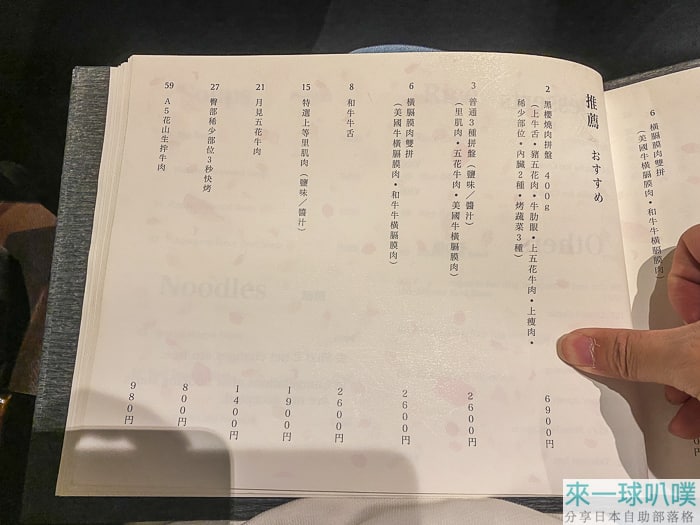 推薦 おすすめ
2 黒櫻燒肉拼盤 400g
(上牛舌•豬五花肉•牛肋眼•上五花牛肉•上瘦肉•
稀少部位•內臟2種•烤蔬菜3種)
6900円
3 普通3種拼盤(鹽味/醬汁)
(里肌肉•五花牛肉•美國牛橫膈膜肉)
2600円
6 橫膈膜肉雙拼
(美國牛橫膈膜肉•和牛牛橫膈膜肉)
2600円
8 和牛牛舌
2600円
15 特選上等里肌肉(鹽味/醬汁)
1900円
21 月見五花牛肉
1400円
27 臀部稀少部位3秒快烤
800円
59 A5花山生拌牛肉
980円
6 橫膈膜肉雙拼
(美國牛橫膈膜肉•和牛牛橫膈膜肉)
Noodles
來一球叭噗
分享日本自助部落格